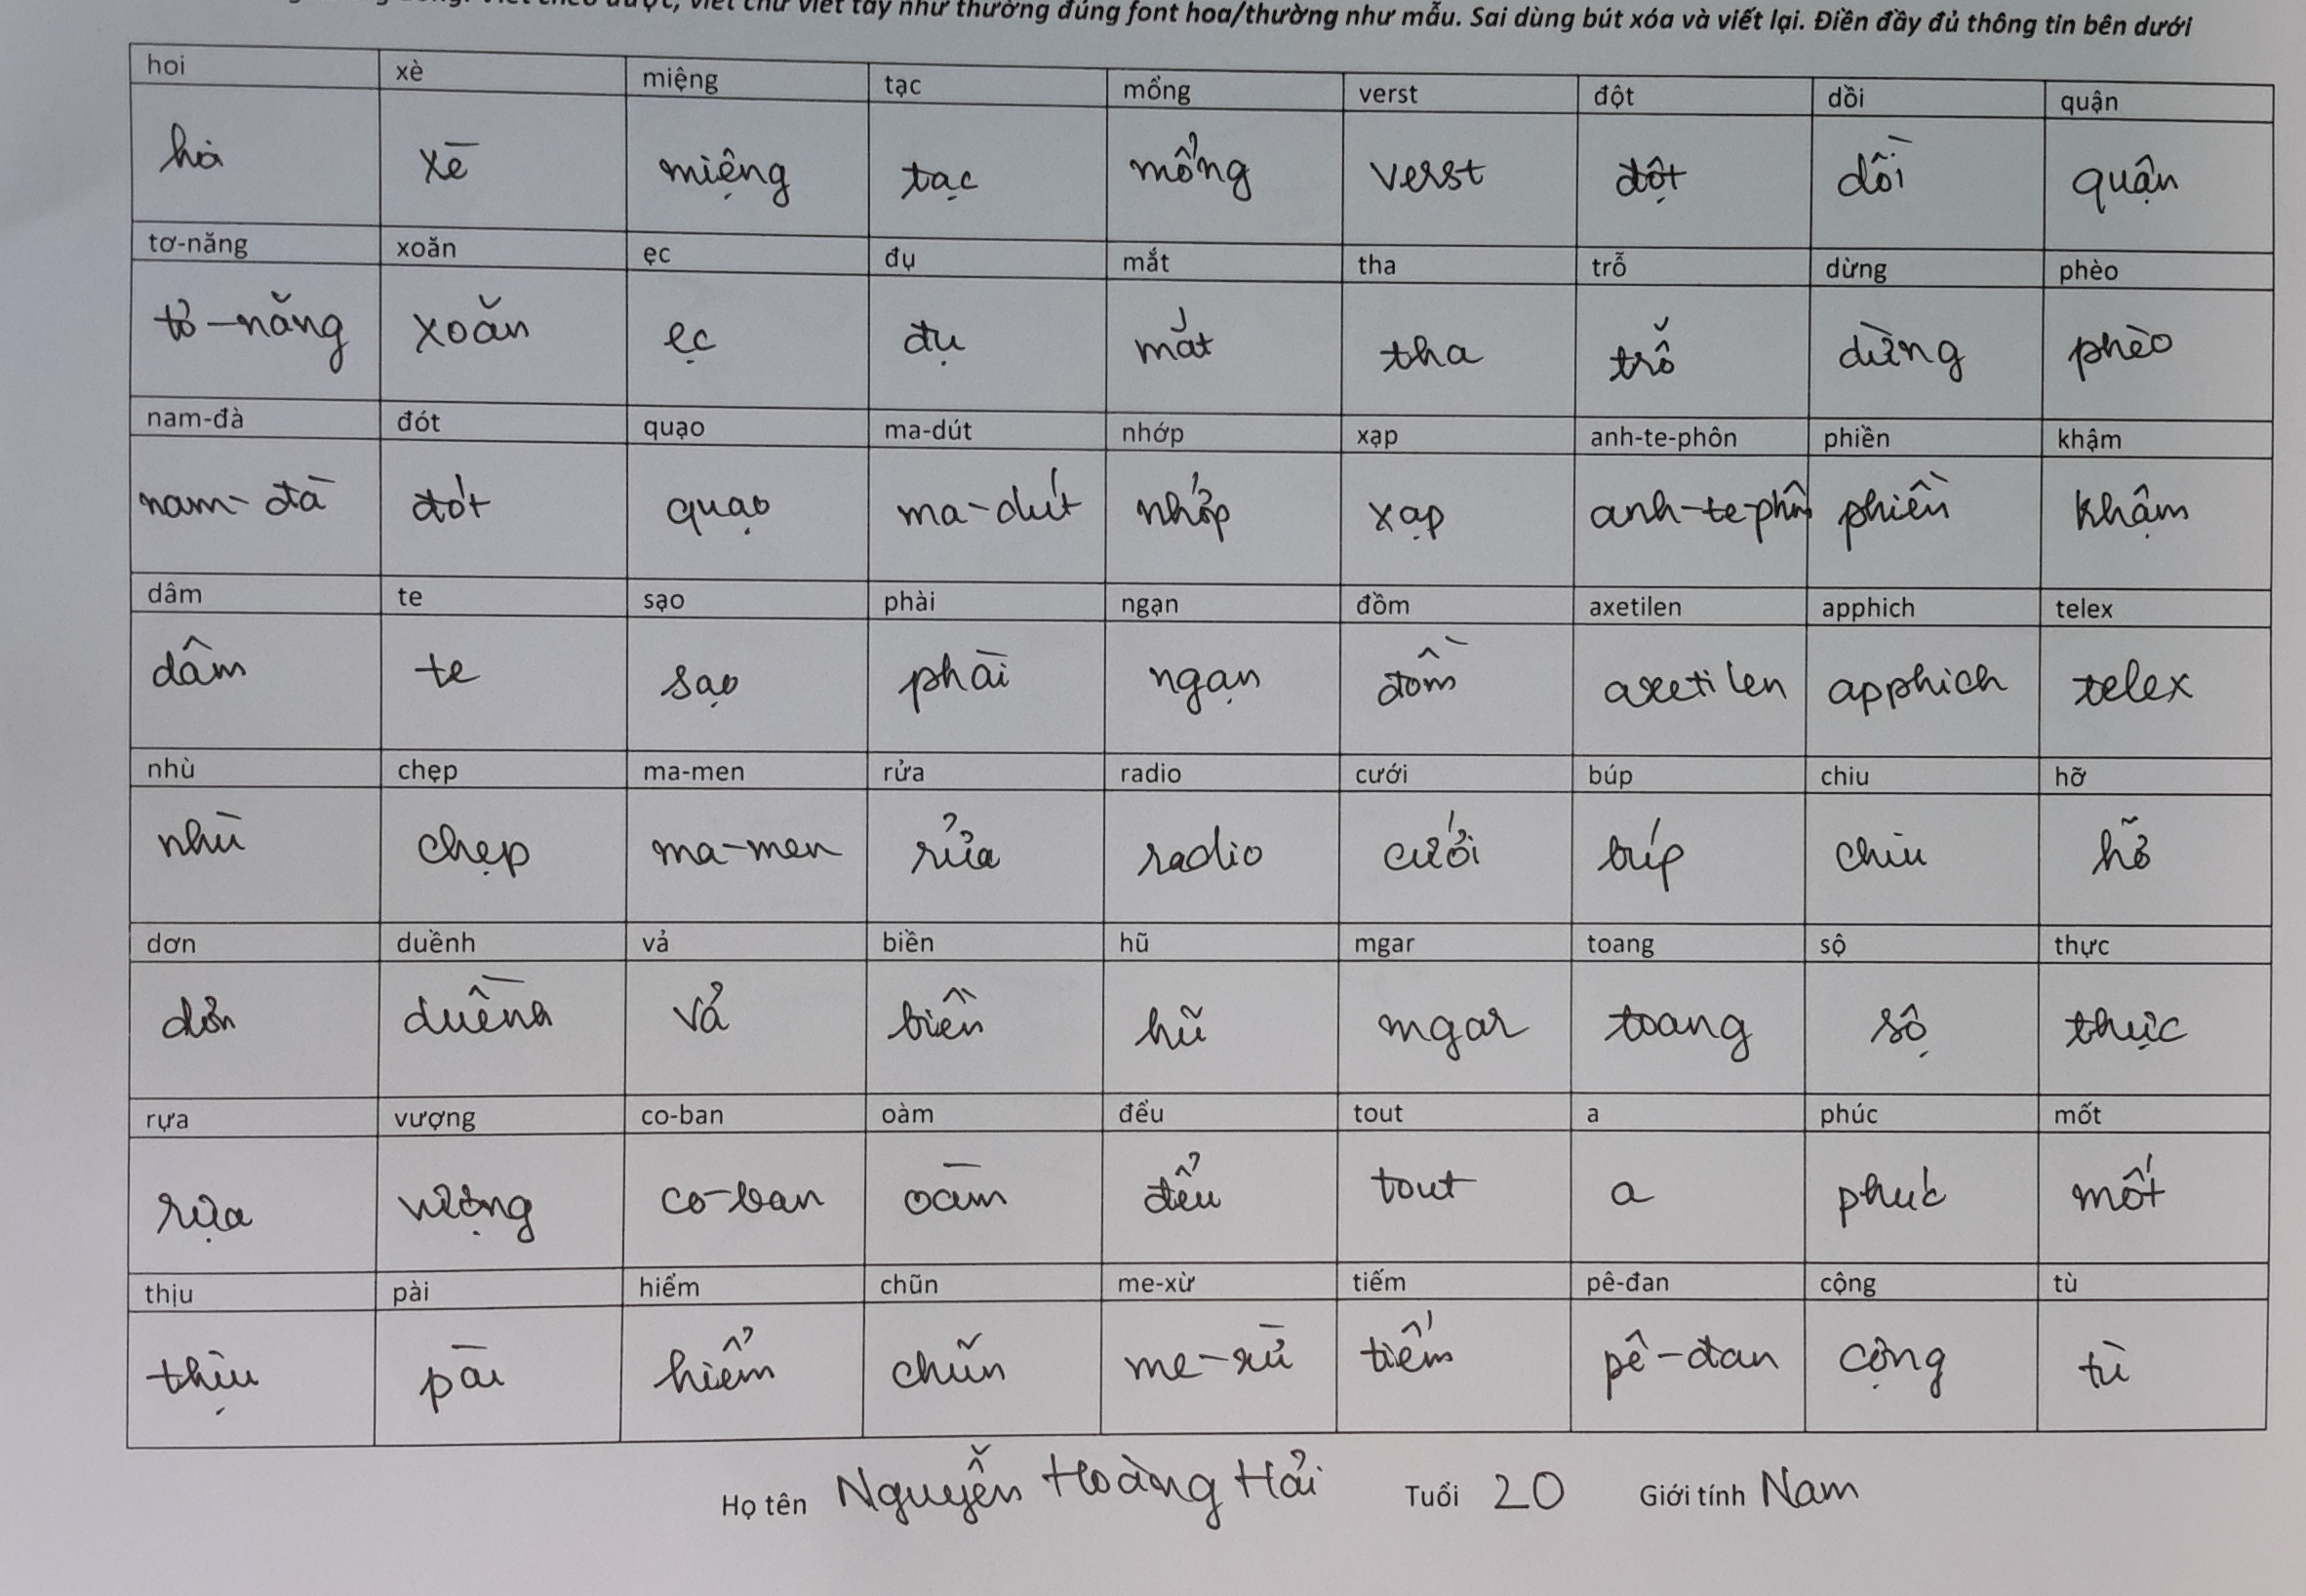 viết chữ viết tay như thường đúng font hoa/thường như mẫu. Sai dùng bút xóa và viết lại. Điền đầy đủ thông tin bên dưới
hoi xè miệng tạc mổng verst đột dồi quận
hoi xè miệng tạc mổng verst đột dồi quận
tơ-năng xoăn ẹc đụ mắt tha trỗ dừng phèo
tơ-năng xoăn ẹc đụ mắt tha trỗ dừng phèo
nam-đà đót quạo ma-dút nhớp xạp anh-te-phôn phiền khậm
nam-đà đót quạo ma-dút nhớp xạp anh-te-phôn phiền khậm
dâm te sạo phài ngạn đồm axetilen apphich telex
dâm te sạo phài ngạn đồm axetilen apphich telex
nhù chẹp ma-men rửa radio cưới búp chiu hỡ
nhù chẹp ma-men rửa radio cưới búp chiu hỡ
dơn duềnh vả biền hũ mgar toang sộ thực
dơn duềnh vả biền hũ mgar toang sộ thực
rựa vượng co-ban oàm đểu tout a phúc mốt
rựa vượng co-ban oàm đểu tout a phúc mốt
thịu pài hiểm chũn me-xừ tiếm pê-đan cộng tù
thịu pài hiểm chũn me-xừ tiếm pê-đan cộng tù
Họ tên Nguyễn Hoàng Hải Tuổi 20 Giới tính Nam